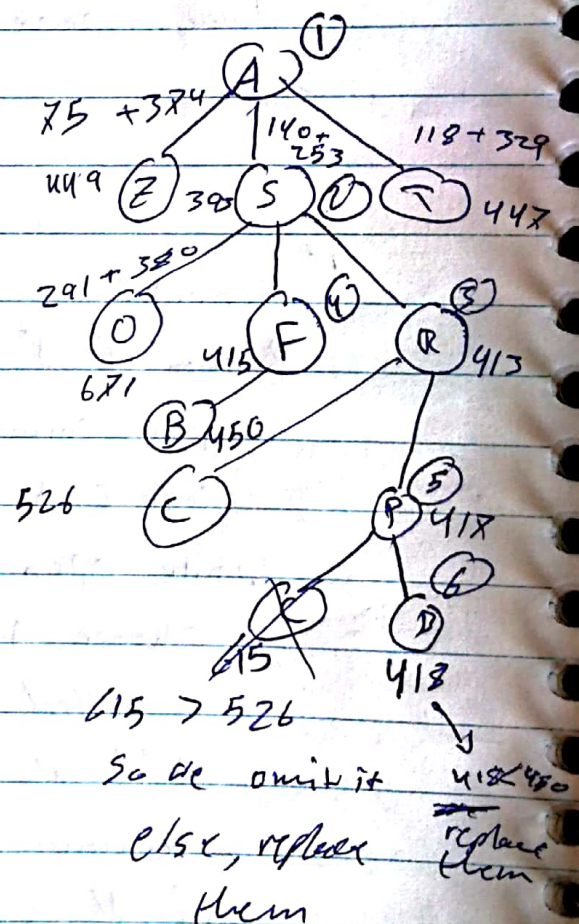 1
A
75 + 374
140 +
253
118 + 329
449
Z
393
S
2
T
447
291 + 380
O
671
4
F
415
3
R
413
B
450
526
C
5
P
417
6
C
615
B
418
615 > 526
so we omit it
418 < 450
else, replace
replace
them
them